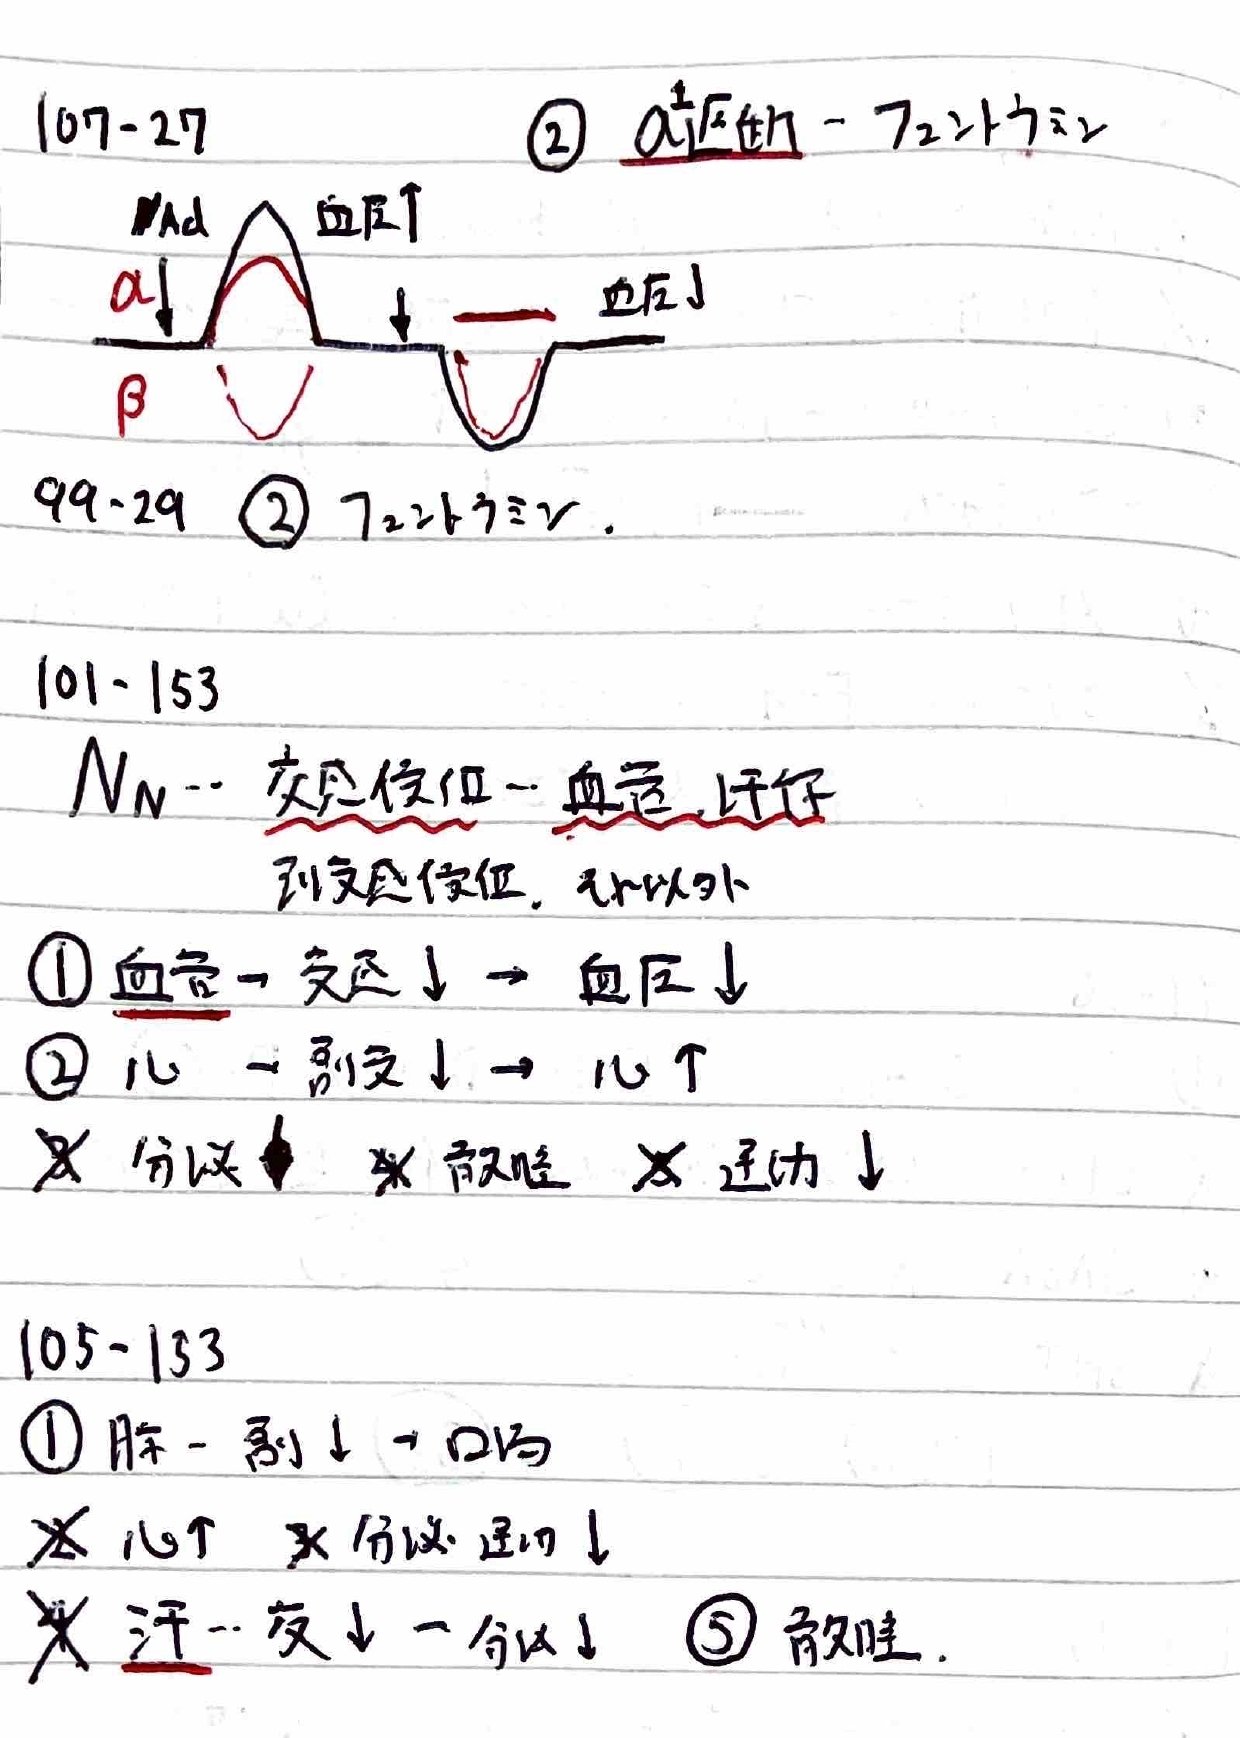 107-27 ② α遮断 - フェントラミン
NAd 血圧↑
α↓ ↓ 血圧↓
β
99-29 ② フェントラミン.
101-153
NN… 交感優位 - 血管、汗仔
副交感優位. それ以外
① 血管 - 交感↓ → 血圧↓
② 心 - 副交↓ → 心↑
3 分泌↓ 4 散瞳 5 運動↓
105-153
① 膵 - 副↓ → 口渇
2 心↑ 3 分泌・運動↓
4 汗… 交↓ - 分泌↓ ⑤ 散瞳.